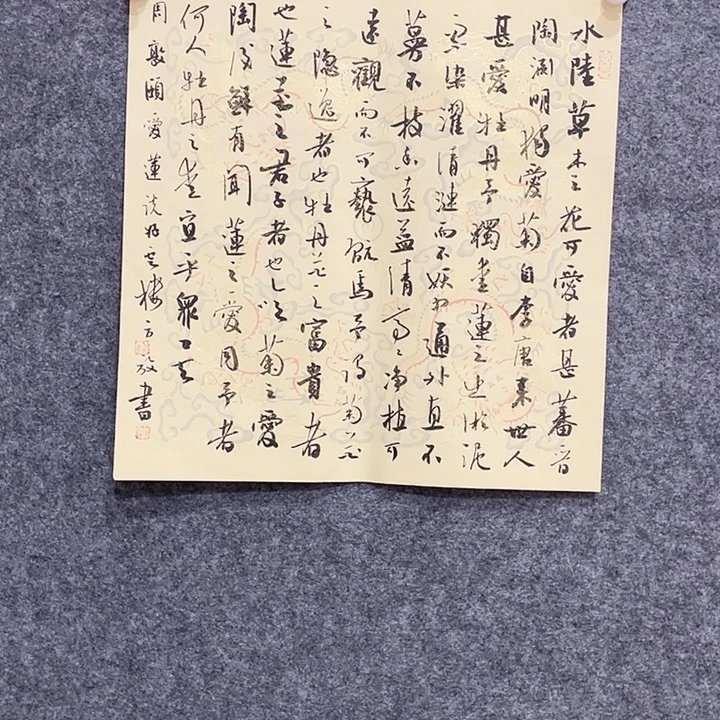 水陸草木之花可愛者甚蕃晉
陶淵明獨愛菊自李唐來世人
甚愛牡丹予獨愛蓮之出淤泥
而不染濯清漣而不妖中通外直不
蔓不枝香遠益清亭亭淨植可
遠觀而不可褻翫焉予謂菊花
之隱逸者也牡丹花之富貴者
也蓮花之君子者也噫菊之愛
陶後鮮有聞蓮之愛同予者
何人牡丹之愛宜乎眾矣
周敦頤愛蓮說 樓 書